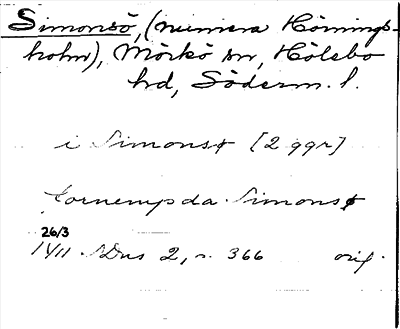 Simonsö, (numera Hörnings-
holm), Mörkö sn, Hölebo
hd, Söderm. l.
i Simonsø [2 ggr]
fornempda Simonsø
26/3
1411. SDns 2, s. 366 orig.